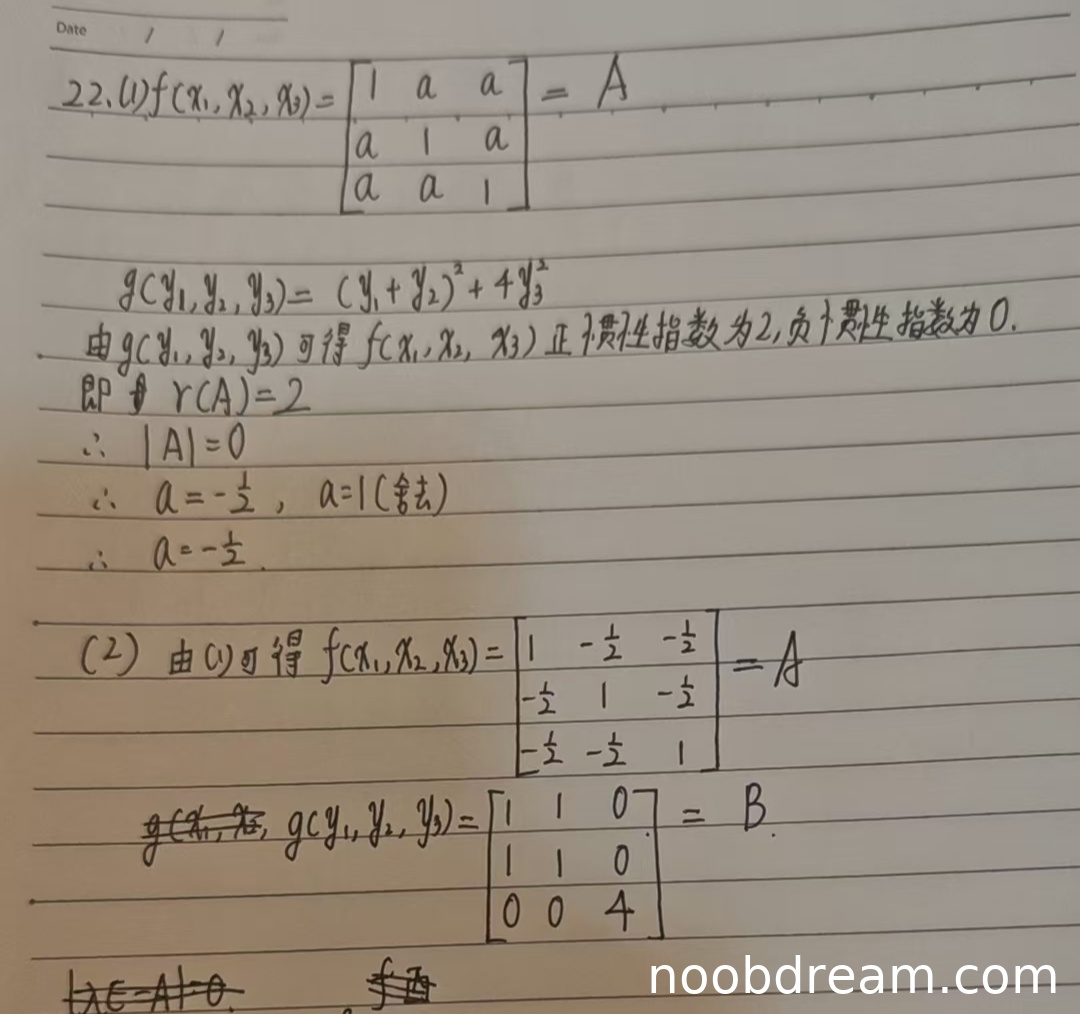 Date / /
22.(1) f(x₁, x₂, x₃) = [1 a a
a 1 a
a a 1] = A
g(y₁, y₂, y₃) = (y₁+y₂)²+4y₃²
由g(y₁, y₂, y₃)可得f(x₁, x₂, x₃)正惯性指数为2,负惯性指数为0.
即 r(A)=2
∴ |A|=0
∴ a=-1/2, a=1(舍去)
∴ a=-1/2.
(2) 由(1)可得 f(x₁, x₂, x₃) = [1 -1/2 -1/2
-1/2 1 -1/2
-1/2 -1/2 1] = A
g(x₁, x₂, g(y₁, y₂, y₃) = [1 1 0
1 1 0
0 0 4] = B.
|λE-A|=0.
noobdream.com